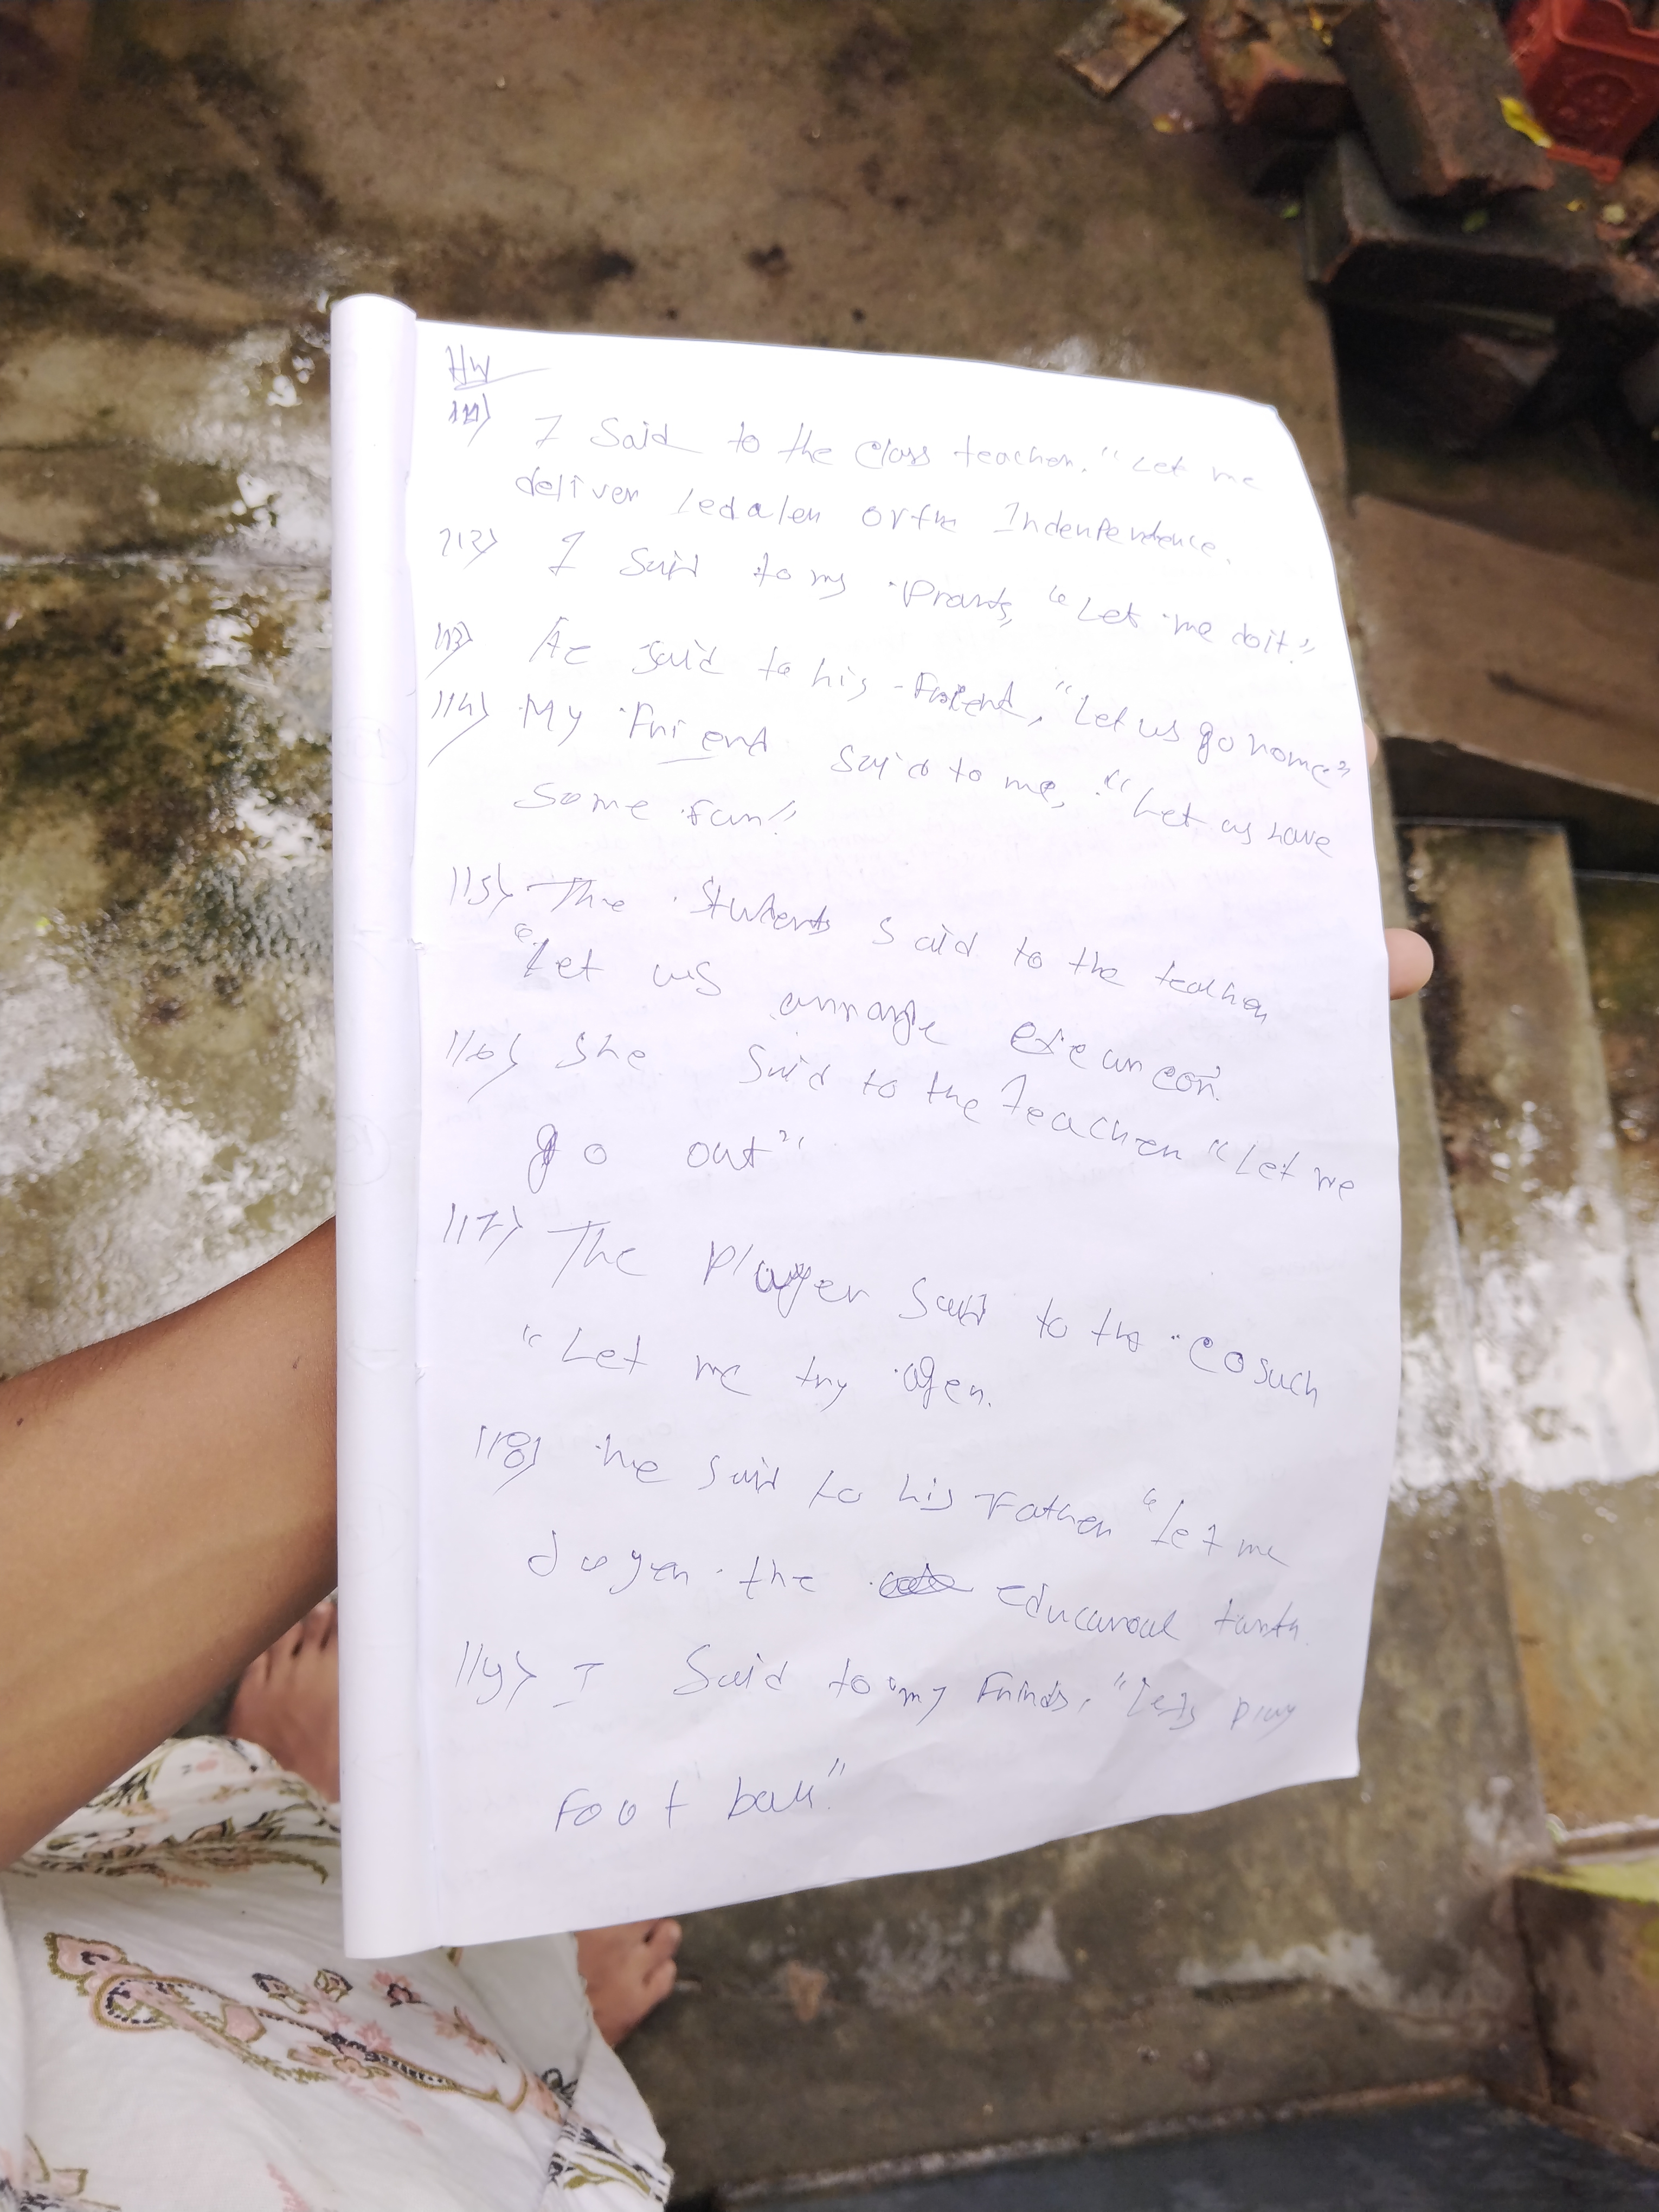 HW
111) I Said to the Class teacher. "Let me
deliver or the Indenpendence.
112) I Said to my Prants, "Let me do it."
113) He said to his Friend, "Let us go home"
114) My Friend said to me, "Let us have
some fun"
115) The Students said to the teacher
"Let us arrange
116) She Said to the Teacher "Let me
go out"
117) The Player Said to the coauch
"Let me try agen.
118) he said to his Father "let me
the
119) I Said to my Frinds, "lets play
Foot ball"